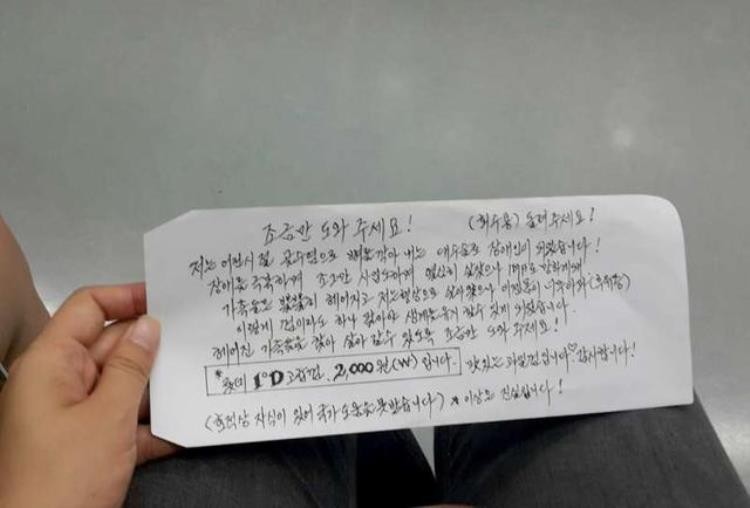 조금만 도와 주세요! (회수용) 돌려주세요!
저는 어린시절 골수염으로 뼈를깎아 내는 대수술로 장애인이 되었습니다!
장애를 극복하며 조그만 사업도하며 열심히 살았으나 IMF로 망하게돼
가족들은 뿔뿔이 헤어지고 저는 행상으로 살아왔으나 이젠몸이
이렇게 껌이라도 하나 팔아야 생계를유지 할수 있게 되었습니다.
헤어진 가족들을 찾아 살아 갈수 있도록 조금만 도와 주세요!
* 롯데 ID 고급껌. 2,000원(W) 입니다. 맛있는 과일껌입니다♡감사합니다!
(호적상 자식이 있어 국가 도움을 못받습니다) * 이상은 진실입니다!